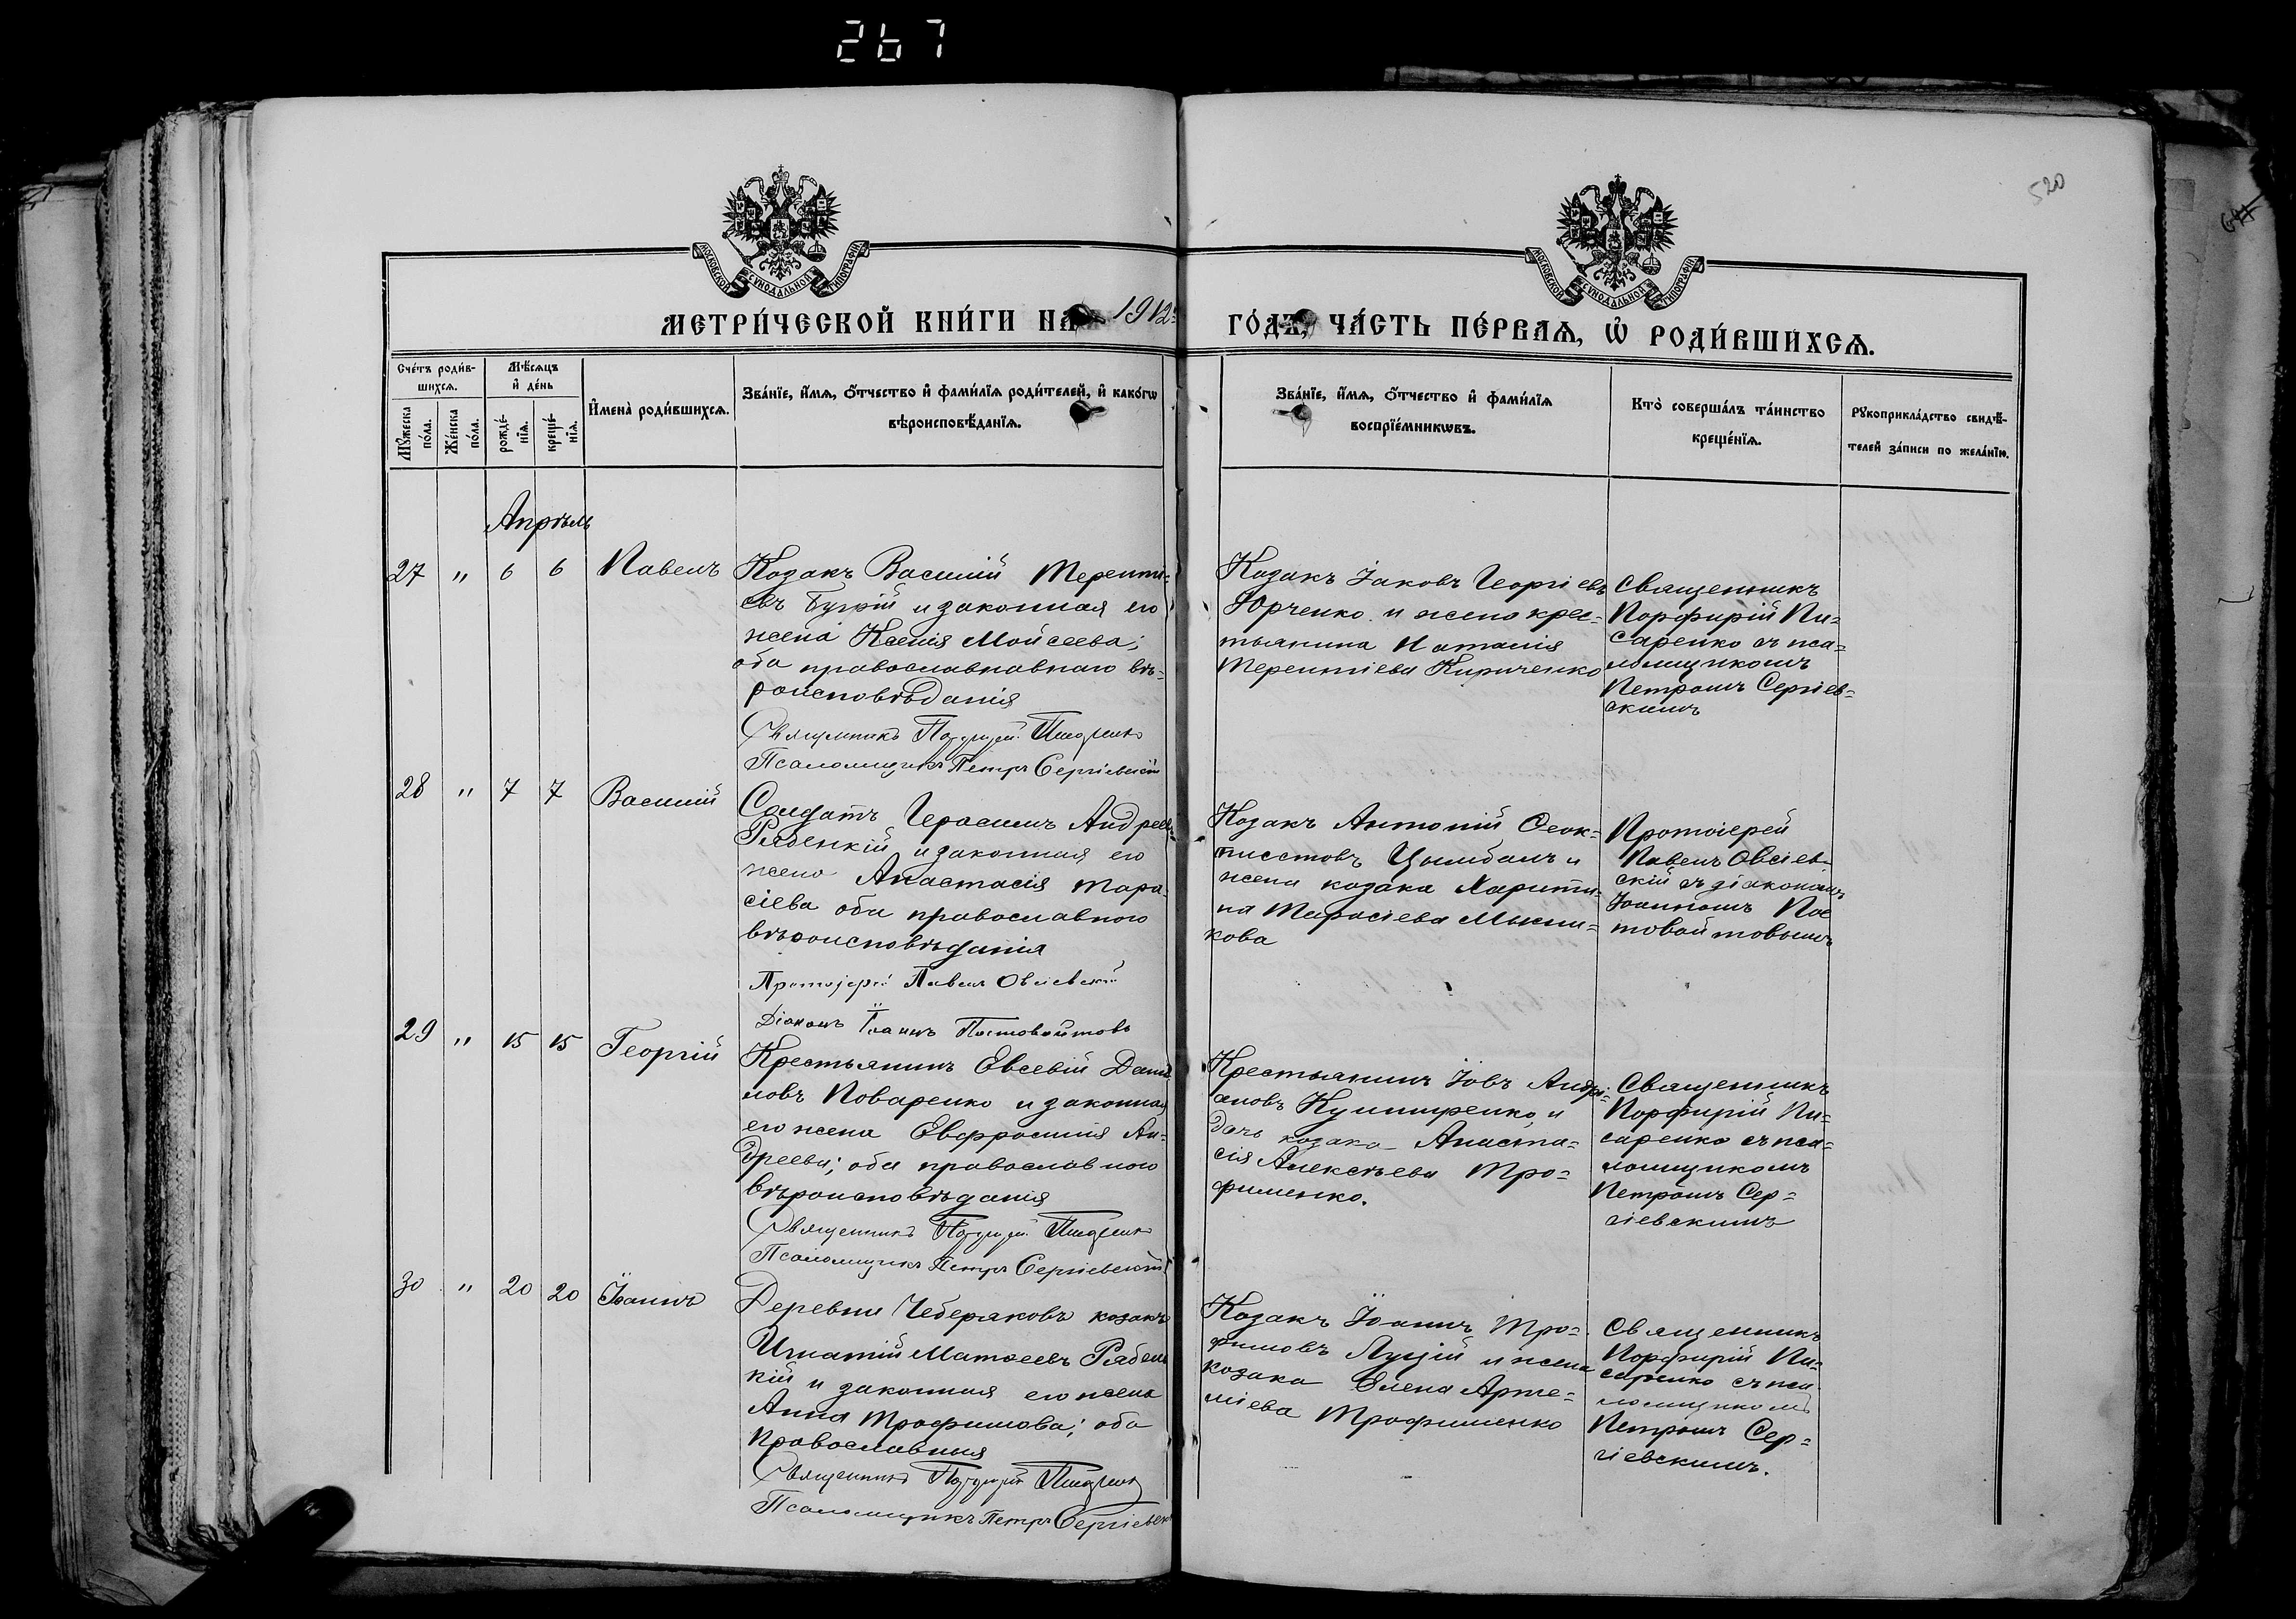 267
520
МОСКОВСКОЙ СѴНОДАЛЬНОЙ ТИПОГРАФІИ
МОСКОВСКОЙ СѴНОДАЛЬНОЙ ТИПОГРАФІИ
МЕТРИ́ЧЕСКОЙ КНИ́ГИ НА 1912
ГО́ДЪ, ЧА́СТЬ ПЕ́РВАѦ, Ѡ҆ РОДИ́ВШИХСѦ.
Сче́тъ роди́в-
шихсѧ.
Мꙋ́жеска
по́ла.
Же́нска
по́ла.
Мѣ́сѧцъ
и҆ де́нь
рожде́-
нїѧ.
креще́-
нїѧ.
И҆мена̀ роди́вшихсѧ.
Зва́нїе, и҆́мѧ, ѻ҆́тчество и҆ фами́лїѧ роди́телей, и҆ како́гѡ
вѣроисповѣ́данїѧ.
Зва́нїе, и҆́мѧ, ѻ҆́тчество и҆ фами́лїѧ
воспрїе́мникѡвъ.
Кто̀ соверша́лъ та́инство
креще́нїѧ.
Рꙋкоприкла́дство свидѣ́-
телей за́писи по жела́нїю.
Апрѣль
27 " 6 6 Павелъ
Козакъ Василій Теренті-
евъ и законная его
жена Ксенія Мойсеева;
оба православнавнаго вѣ-
роисповѣданія
Священникъ Порфирій Писаренко
Псаломщикъ Петръ Сергіевскій
Козакъ Іаковъ Георгіевъ
Юрченко и жена крес-
тьянина Наталія
Терентіева Кириченко
Священникъ
Порфирій Пи-
саренко съ пса-
ломщикомъ
Петромъ Сергіев-
скимъ
28 " 7 7 Василій
Солдатъ Герасимъ Андреевъ
Рябенкій и законная его
жена Анастасія Тара-
сіева оба православного
вѣроисповѣданія
Протоіерей Павелъ Овсіевскій
Діаконъ Іоаннъ Постовойтовъ
Козакъ Антоній Феок-
тистовъ Цымбалъ и
жена козака Харити-
на Тарасіева
кова
Протоіерей
Павелъ Овсіев-
скій съ діакономъ
Іоанномъ Пос
товойтовымъ
29 " 15 15 Георгій
Крестьянинъ Евсевій Даніи
ловъ Поваренко и законная
его жена Евфросинія Ан-
дреева; оба православного
вѣроисповѣданія
Священникъ Порфирій Писаренко
Псаломщикъ Петръ Сергіевскій
Крестьянинъ Іовъ Андрі-
ановъ Кушниренко, и
дочь козака Анаста-
сія Алексѣева Тро-
фименко.
Священникъ
Порфирій Пи-
саренко съ пса-
ломщикомъ
Петромъ Сер-
гіевскимъ
30 " 20 20 Іоаннъ
Деревни Чеберяковъ козакъ
Игнатій Матѳеевъ Рябень
кій и законная его жена
Анна Трофимова; оба
Православныя
Священникъ Порфирій Писаренко
Псаломщикъ Петръ Сергіевск
Козакъ Іоаннъ Тро-
фимовъ Луцій и жена
козака Елена Арте-
міева Трофименко
Священникъ
Порфирій Пи-
саренко съ пса
ломщикомъ
Петромъ Сер-
гіевскимъ.